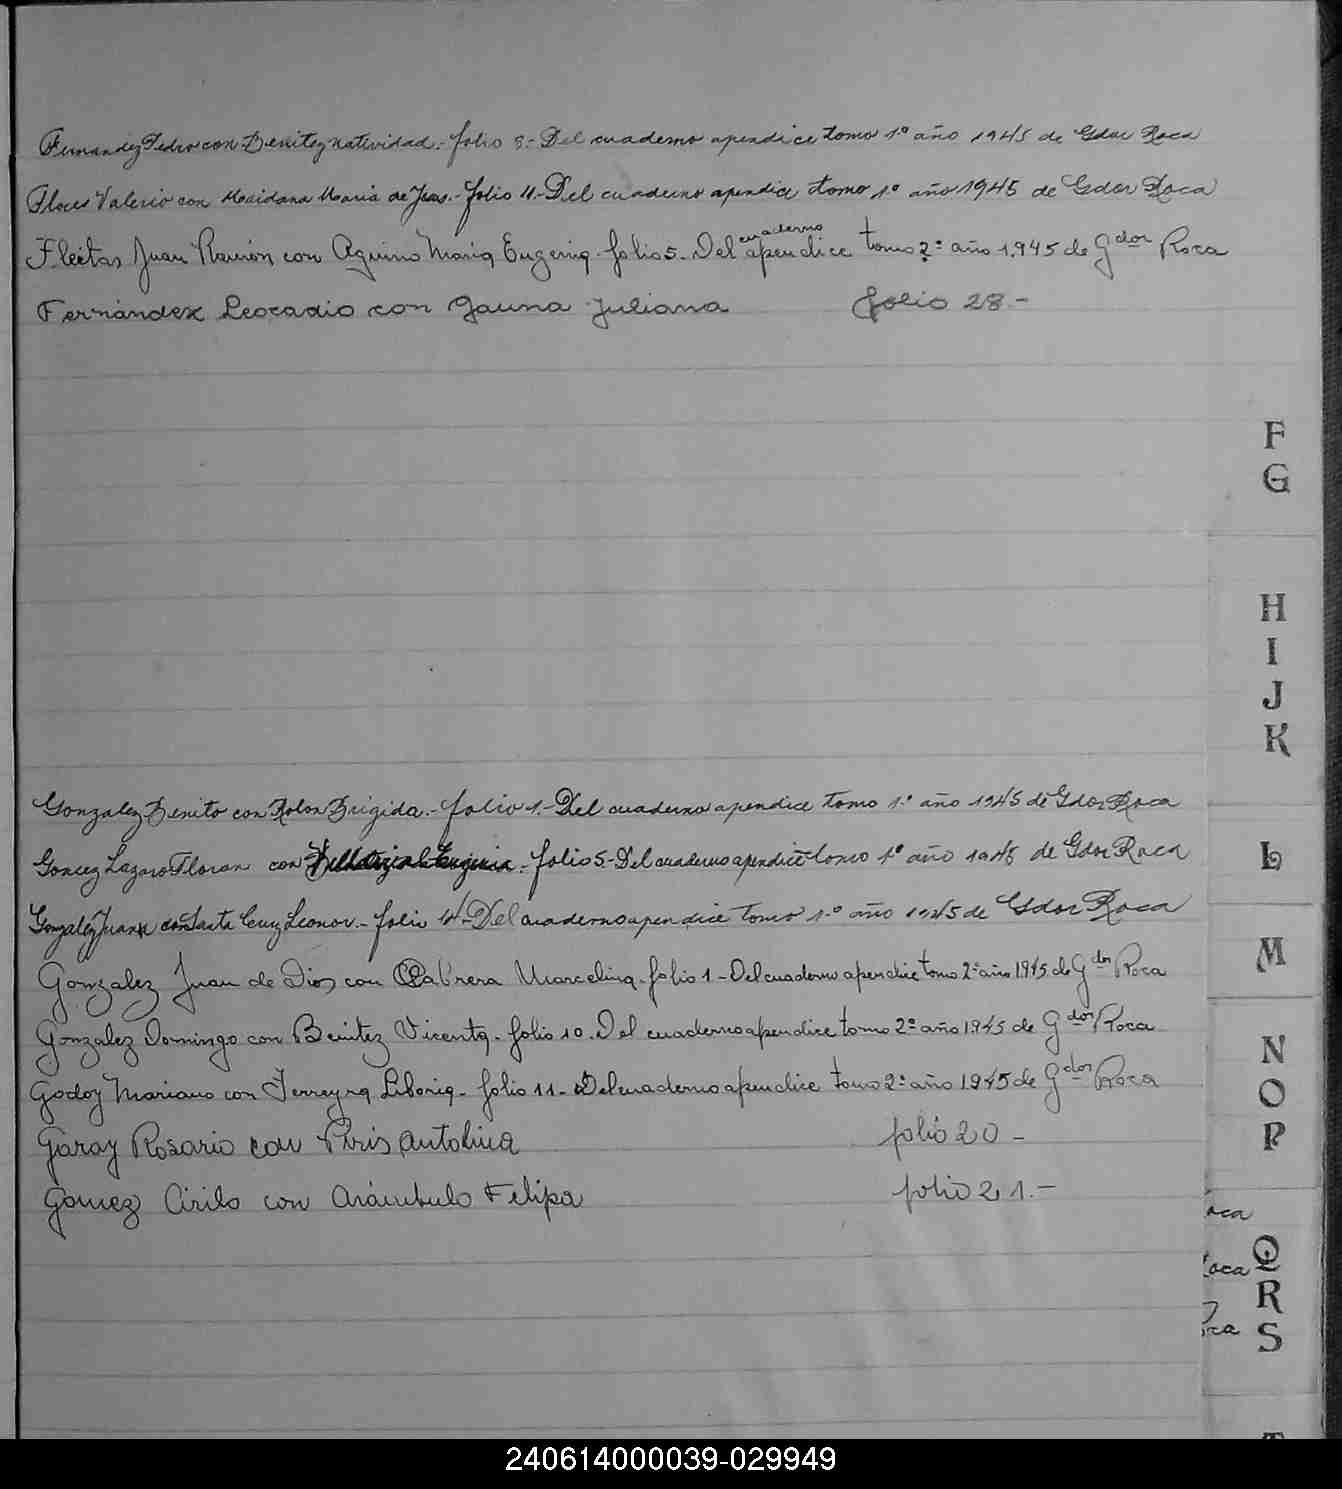 Fernandez Pedro con Benitez Natividad.- folio 8.- Del cuaderno apendice tomo 1º año 1945 de Gdor Roca
Flores Valerio con Maidana Maria de Jesus.- folio 11.- Del cuaderno apendice tomo 1º año 1945 de Gdor Roca
cuaderno
Fleitas Juan Ramón con Aquino Maria Eugenia. folio 5. Del apendice tomo 2º año 1.945 de Gdor Roca
Fernández Leocadio con Gauna Juliana folio 28.-
F
G
H
I
J
K
Gonzalez Benito con Rolon Brigida.- folio 1.- Del cuaderno apendice tomo 1º año 1945 de Gdor Roca
Gomez Lazaro Floran con folio 5- Del cuaderno apendice tomo 1º año 1945 de Gdor Roca
L
Gonzalez Juan con Santa Cruz Leonor.- folio Del cuaderno apendice tomo 1º año 1945 de Gdor Roca
M
Gonzalez Juan de Dios con Cabrera Marcelina. folio 1- Del cuaderno apendice tomo 2º año 1945 de Gdor Roca
Gonzalez Domingo con Benitez Vicenta. folio 10. Del cuaderno apendice tomo 2º año 1945 de Gdor Roca
N
Godoy Mariano con Ferreyra Liboria. folio 11- Del cuaderno apendice tomo 2º año 1945 de Gdor Roca
O
Garay Rosario con Piris Antolina folio 20 -
P
Gomez Cirilo con Arámbulo Felipa folio 21.-
oca
Q
oca
R
oca
S
240614000039-029949